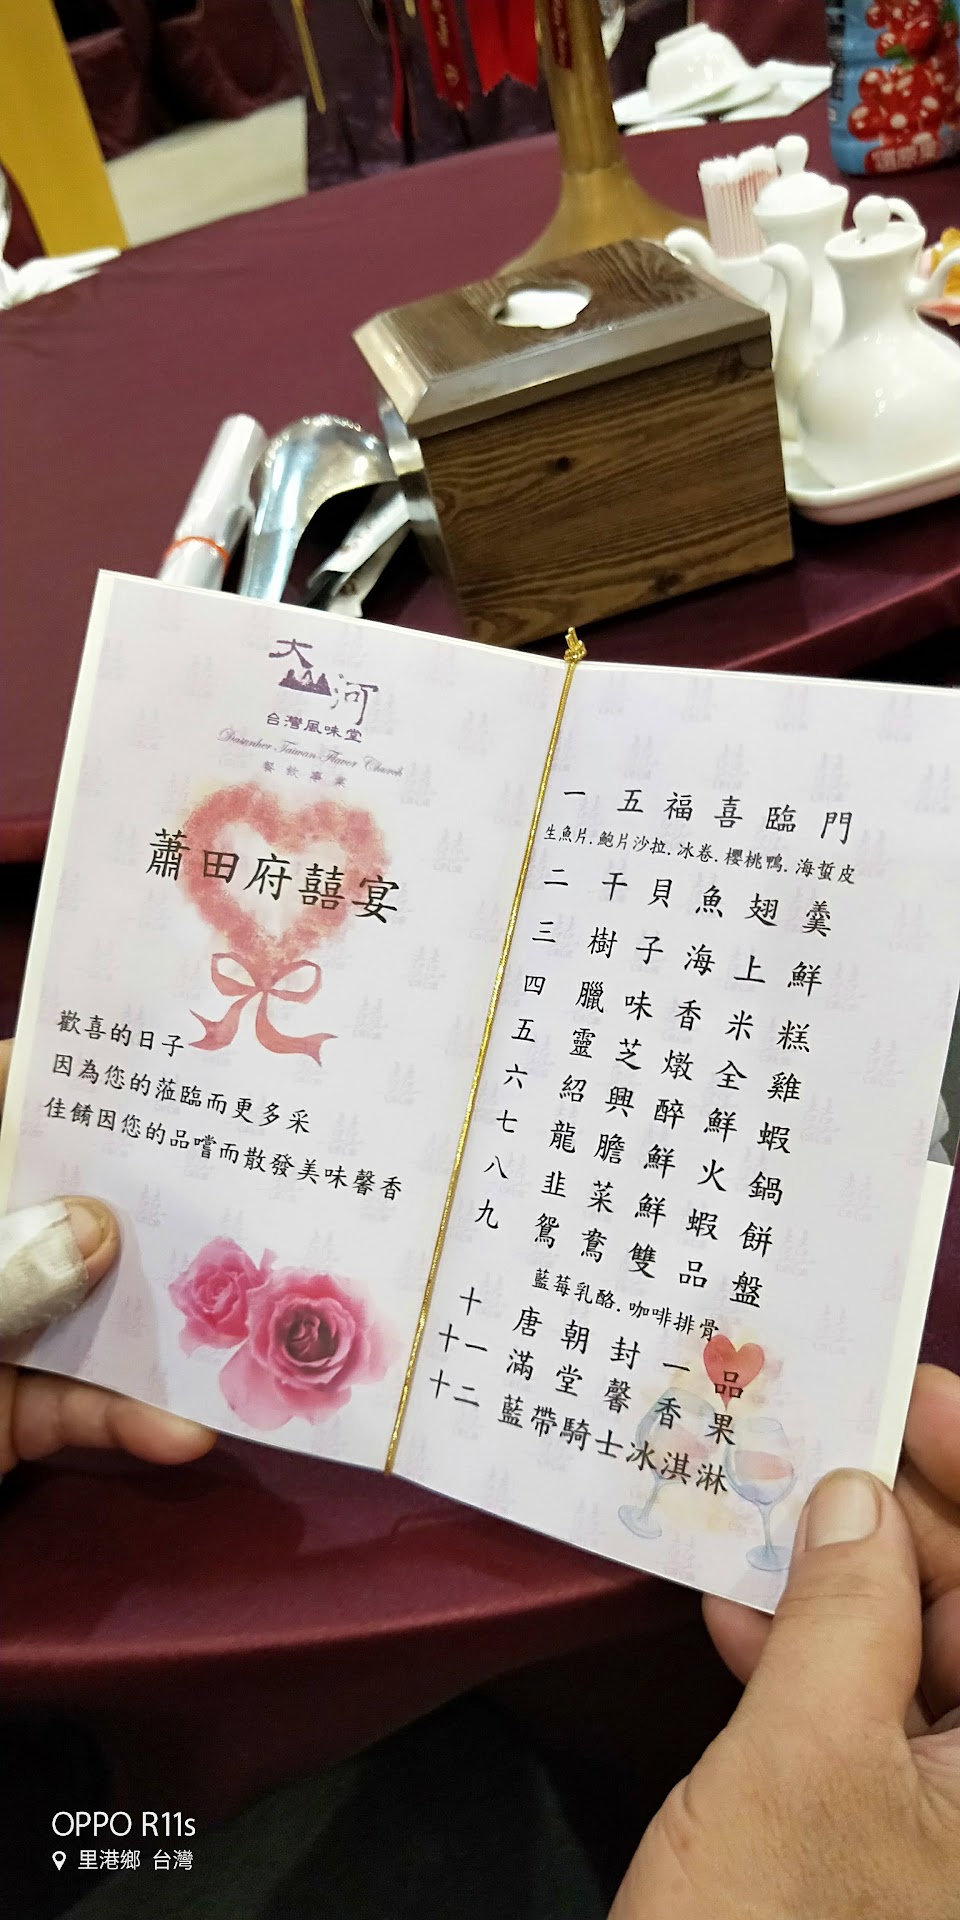 大山河
台灣風味堂
Dasanher Taiwan Flavor Church
餐飲事業
蕭田府囍宴
歡喜的日子
因為您的蒞臨而更多采
佳餚因您的品嚐而散發美味馨香
一 五福喜臨門
生魚片.鮑片沙拉.冰卷.櫻桃鴨.海蜇皮
二 干貝魚翅羹
三 樹子海上鮮
四 臘味香米糕
五 靈芝燉全雞
六 紹興醉鮮蝦
七 龍膽鮮火鍋
八 韭菜鮮蝦餅
九 鴛鴦雙品盤
藍莓乳酪.咖啡排骨
十 唐朝封一品
十一 滿堂馨香果
十二 藍帶騎士冰淇淋
OPPO R11s
里港鄉 台灣